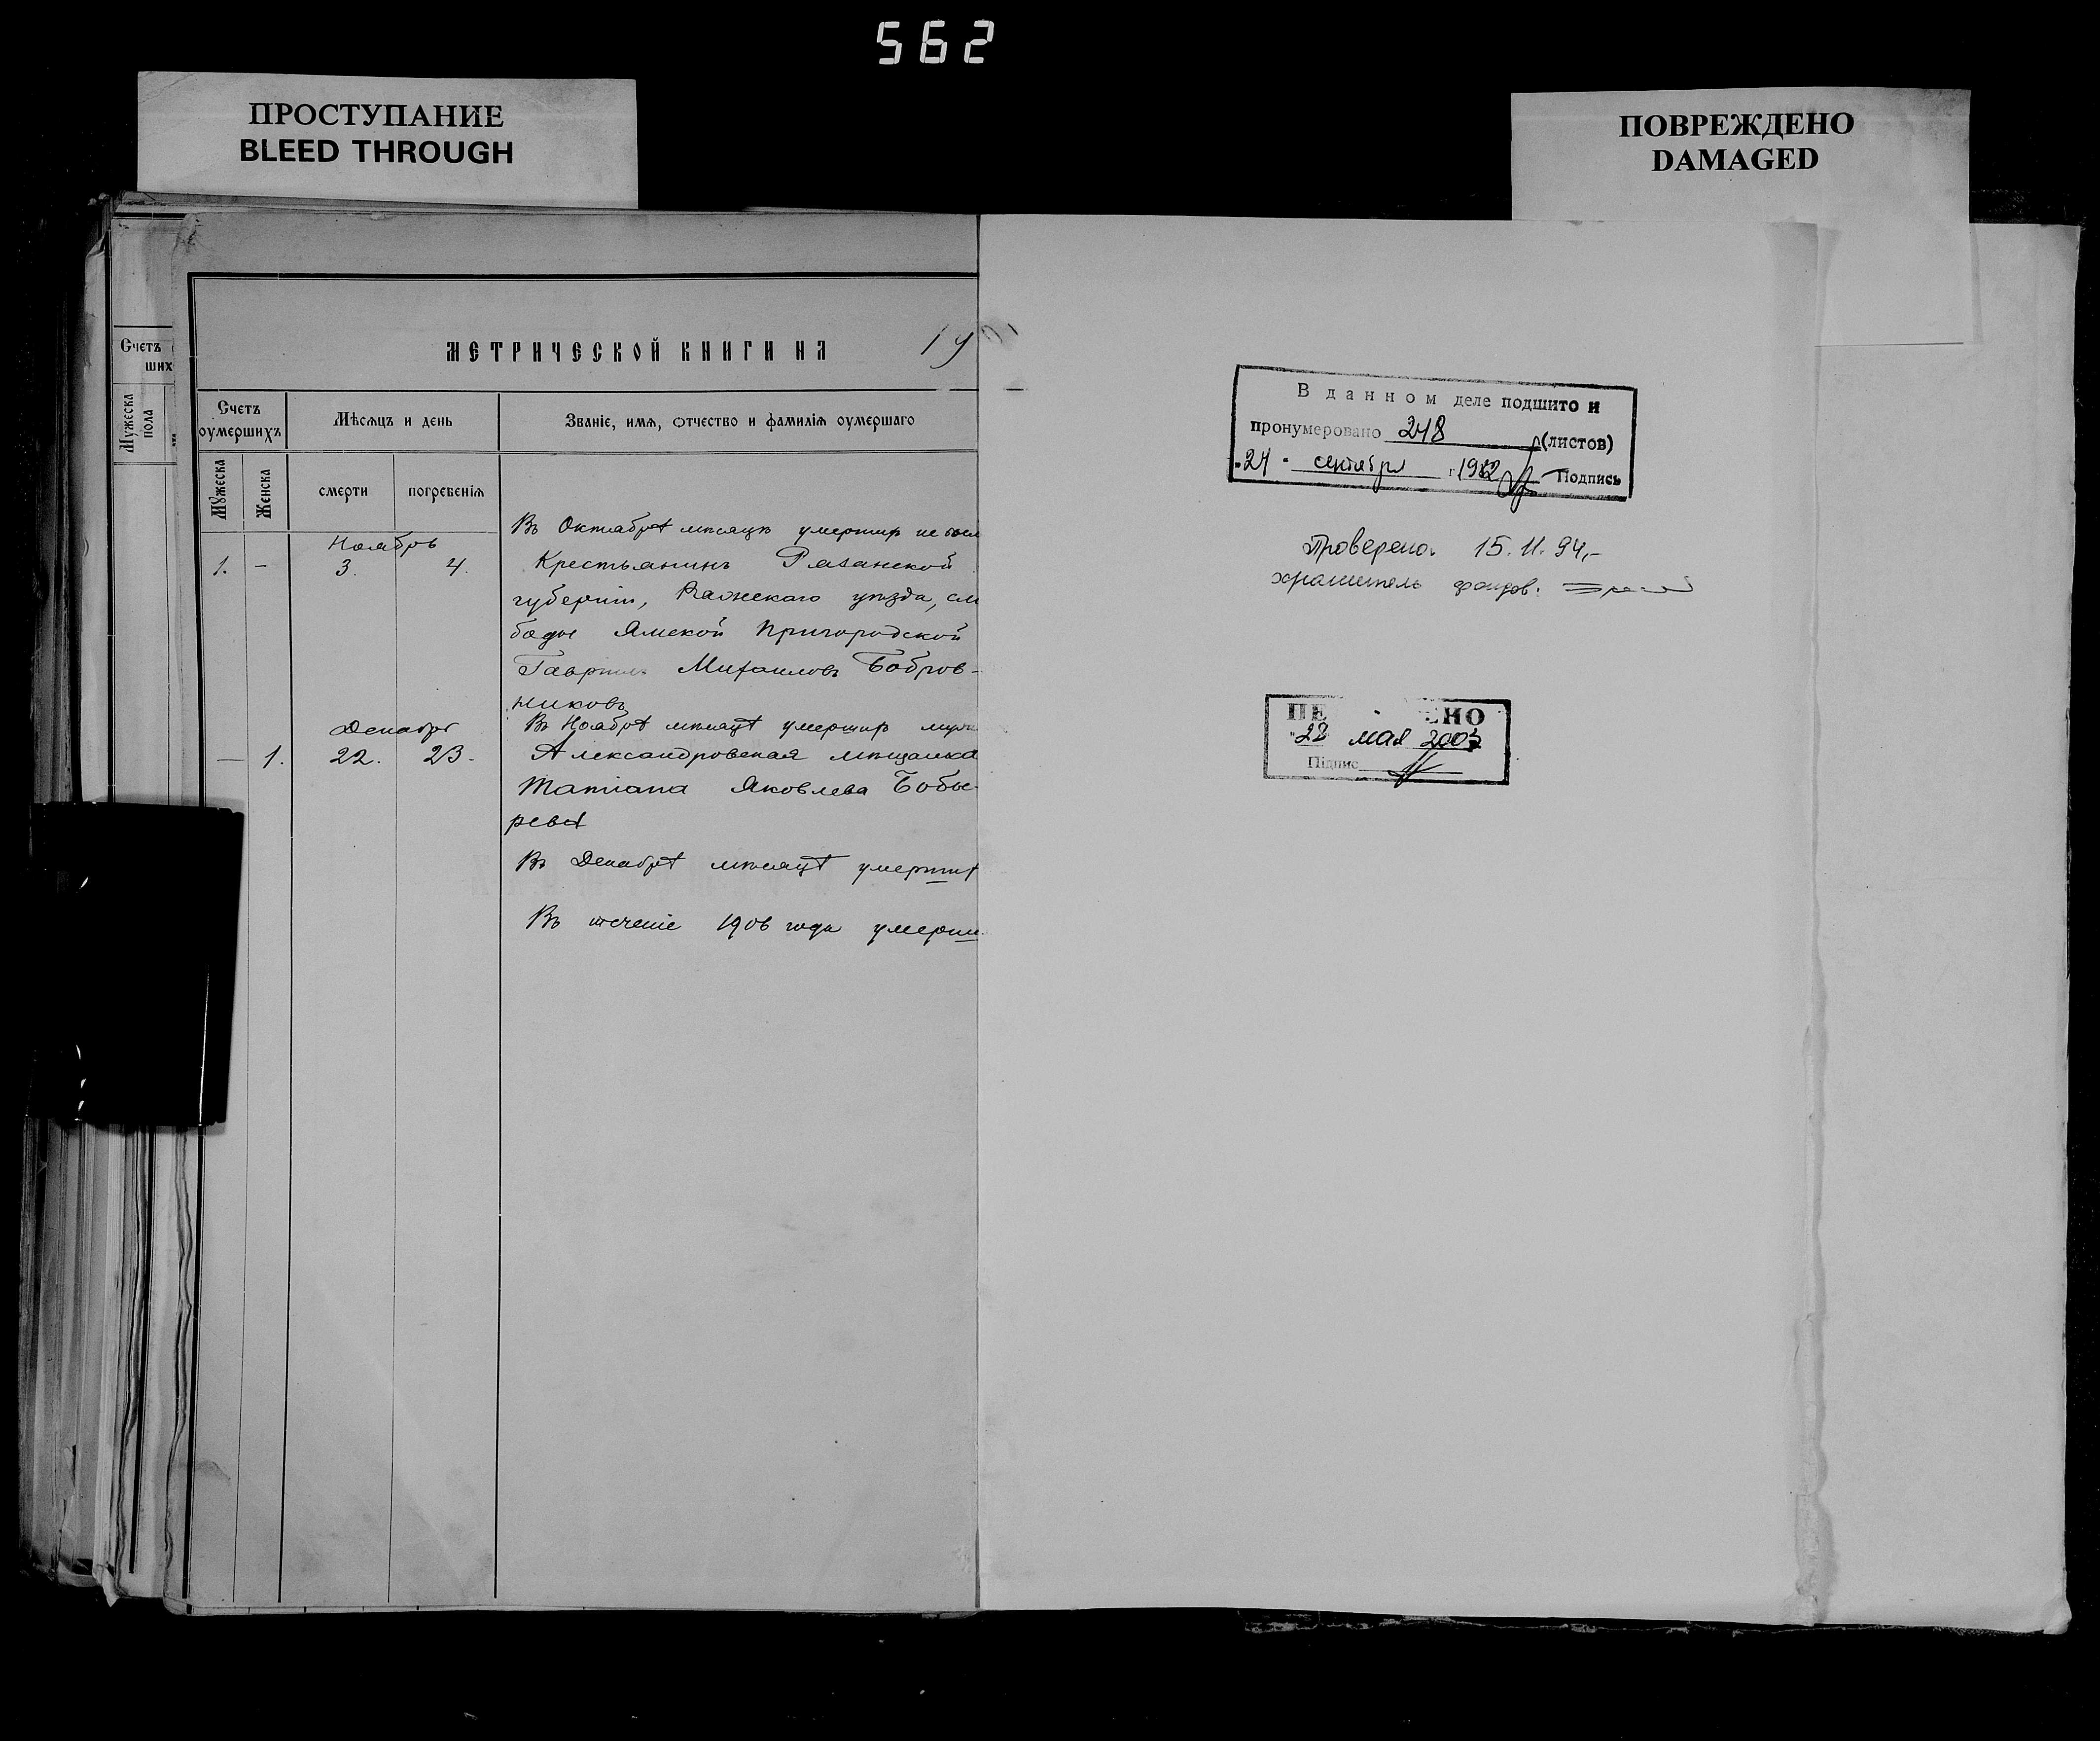 562
ПРОСТУПАНИЕ
BLEED THROUGH
ПОВРЕЖДЕНО
DAMAGED
Счетъ
ших
Мужеска
пола
МЕТРИЧЕСКОЙ КНИГИ НА 19
Счетъ
оумершихъ
Мѣсяцъ и день
Званіе, имя, отчество и фамилія оумершаго
Мужеска
Женска
смерти
погребенія
Въ Октябрѣ мѣсяцѣ умершихъ не
Ноябрь
1. - 3. 4. Крестьянинъ Рязанской
губерніи, Ряжскаго уѣзда, сло
боды Ямской Пригородской
Гавриилъ Михаиловъ Бобров-
никовъ
Въ Ноябрѣ мѣсяцѣ умершихъ
Декабрь
— 1. 22. 23. Александровская мѣщанка
Татіана Яковлева Бобы-
рева
Въ Декабрѣ мѣсяцѣ умерших
Въ теченіе 1906 года умерши
В данном деле подшито и
пронумеровано 248 (листов)
"24" сентября г. 1982 Подпись
Проверено. 15.11.94,-
хранитель фондов:
ПЕ ЕНО
"28 мая 2003
Підпис